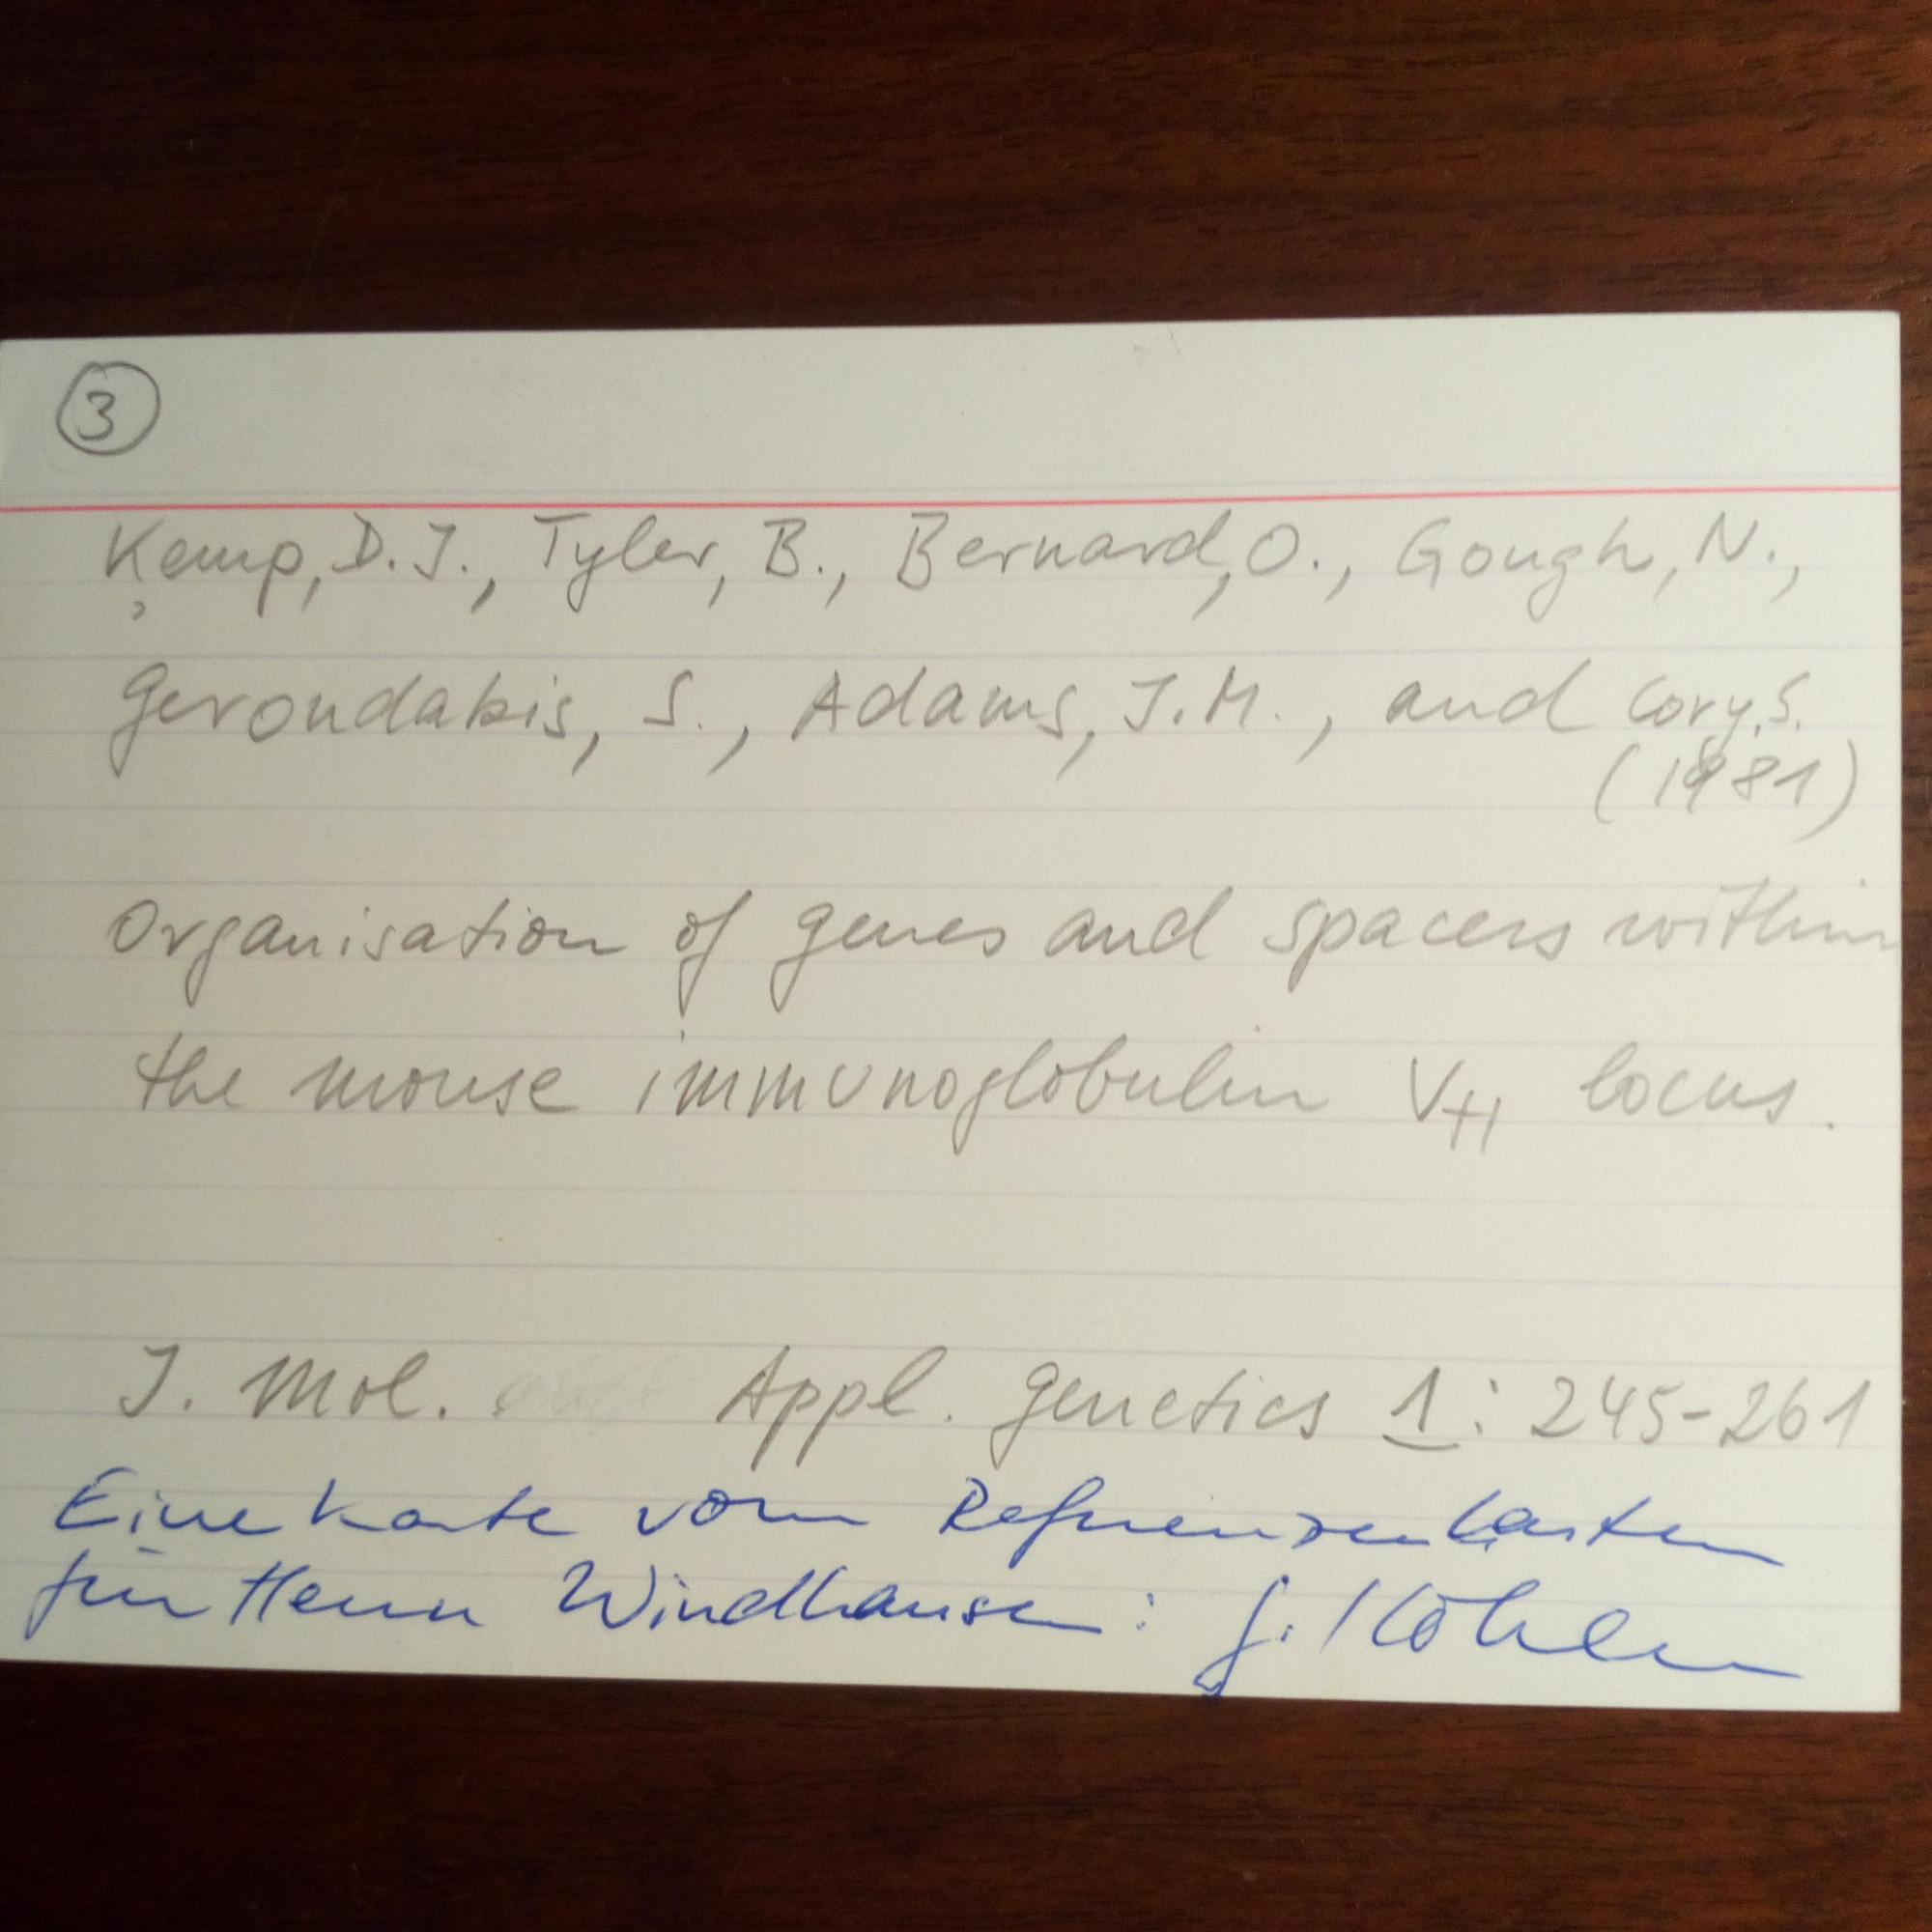 3
Kemp, D.J., Tyler, B., Bernard, O., Gough, N.,
Gerondakis, S., Adams, J.M., and Cory, S.
(1981)
Organisation of genes and spacers within
the mouse immunoglobulin VH locus.
J. Mol. Appl. Genetics 1: 245-261
Eine Karte vom Referenzenkasten
für Herrn Windhausen: G. Köhler